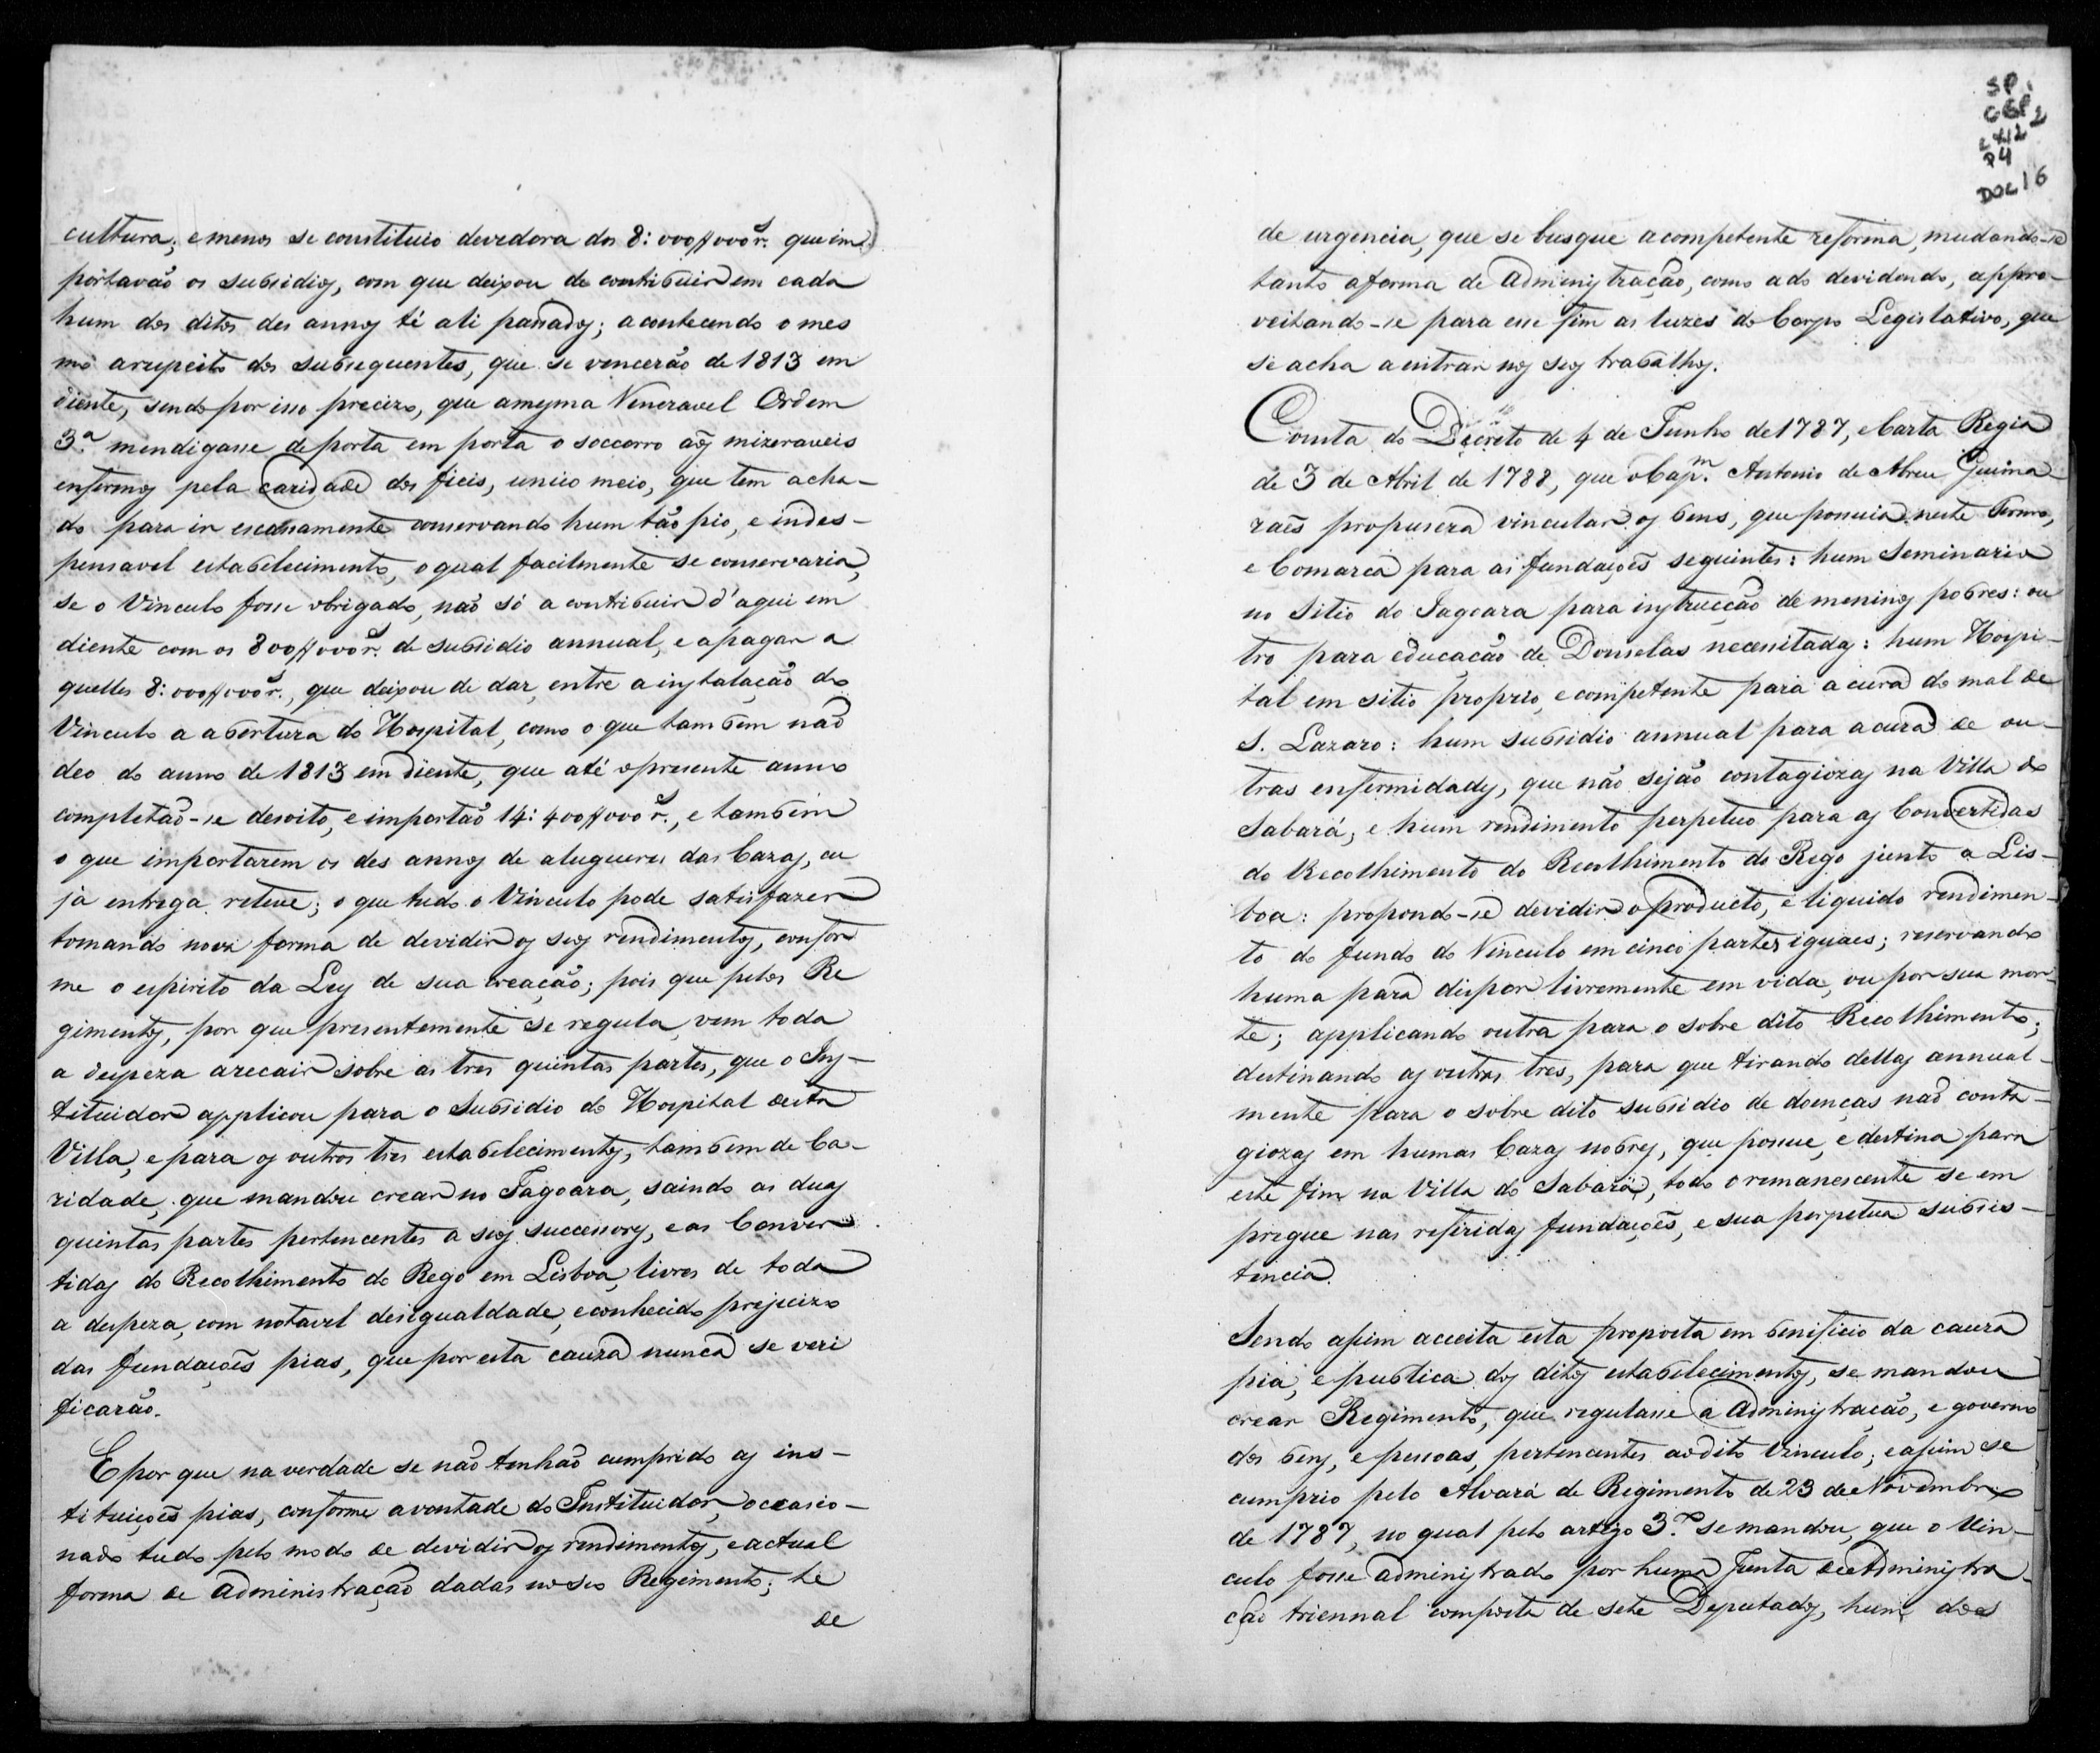 cultura; e menos se constituio devedora dos 8:000//000 rs. que im
portavão os subsidios, com que deixou de contribuir em cada
hum dos ditos des annos té ali passados; acontecendo o mes
mo arespeito dos subsequentes, que se vencerão de 1813 em
diente, sendo por isso precizo, que amesma Veneravel Ordem
3.ª mendigasse de porta em porta o soccorro aos mizeraveis
enfermos pela caridade dos fieis, unico meio, que tem acha-
do para ir escassamente conservando hum tão pio, e indes-
pensavel estabelecimento, o qual facilmente se conservaria,
se o Vinculo fosse obrigado, não só a contribuir d'aqui em
diente com os 800//000 rs. de subsidio annual, e apagar a
quelles 8:000//000 rs., que deixou de dar entre a instalação do
Vinculo a abertura do Hospital, como o que tambem não
deo do anno de 1813 em diente, que até opresente anno
completão-se desoito, e importão 14:400//000 rs., e tambem
o que importarem os des annos de alugueres das Cazas, cu
ja entrega reteve; o que tudo o Vinculo pode satisfazer
tomando nova forma de devidir os seos rendimentos, confor
me o espirito da Ley de sua creação; pois que pelos Re
gimentos, por que presentemente se regula, vem toda
a despeza arecair sobre as tres quintas partes, que o Ins-
tituidor applicou para o Subsidio do Hospital desta
Villa, e para os outros tres estabelecimentos, tambem de Ca-
ridade, que mandou crear no Jagoara, saindo as duas
quintas partes pertencentes a seos successores, e as Conver
tidas do Recolhimento do Rego em Lisboa, livres de toda
a despeza, com notavel desigualdade, e conhecido prejuizo
das fundaçoẽs pias, que por esta cauza nunca se veri
ficarão.
E por que na verdade se não tenhão cumprido as ins-
tituiçoẽs pias, conforme avontade do Instituidor, occasio-
nado tudo pelo modo de devidir os rendimentos, e actual
forma de Administração dadas no seo Regimento; he
de
SP
CGP 2
C X12
P4
DOC 16
de urgencia, que se busque acompetente reforma, mudando-se
tanto aforma de Administração, como ado devidendo, appro-
veitando-se para esse fim as luzes do Corpo Legislativo, que
se acha a entrar nos seos trabalhos.
Consta do Decreto de 4 de Junho de 1787, e Carta Regia
de 3 de Abril de 1788, que o Cap.m Antonio de Abreu Guima
raẽs propusera vincular os bens, que possuia neste Termo,
e Comarca para as fundaçoẽs seguintes: hum Seminario
no Sitio do Jagoara para instrucção de meninos pobres: ou
tro para educacão de Donselas necessitadas: hum Hospi-
tal em sitio proprio, e competente para acura do mal de
S. Lazaro: hum subsidio annual para acura de ou-
tras enfermidades, que não sejão contagiozas na Villa do
Sabará, e hum rendimento perpetuo para as Convertidas
do Recolhimento do Recolhimento do Rego junto a Lis-
boa: propondo-se devidir o producto, e liquido rendimen-
to do fundo do Vinculo em cinco partes iguaes; reservando
huma para dispor livremente em vida, ou por sua mor-
te; applicando outra para o sobre dito Recolhimento;
destinando as outras tres, para que tirando dellas annual-
mente para o sobre dito subsidio de doenças não conta-
giozas em humas Cazas nobres, que possue, e destina para
este fim na Villa do Sabará, todo o remanescente se em
pregue nas referidas fundaçoẽs, e sua perpetua subsis-
tencia.
Sendo assim acceita esta proposta em benificio da cauza
pia, e publica dos ditos estabelecimentos, se mandou
crear Regimento, que regulasse a Administração, e governo
dos bens, e pessoas, pertencentes aodito Vinculo; e assim se
cumprio pelo Alvará de Regimento de 23 de Novembro
de 1787, no qual pelo artigo 3.º se mandou, que o Vin-
culo fosse administrado por huma Junta de Administra-
ção triennal composta de sete Deputados, hum dos